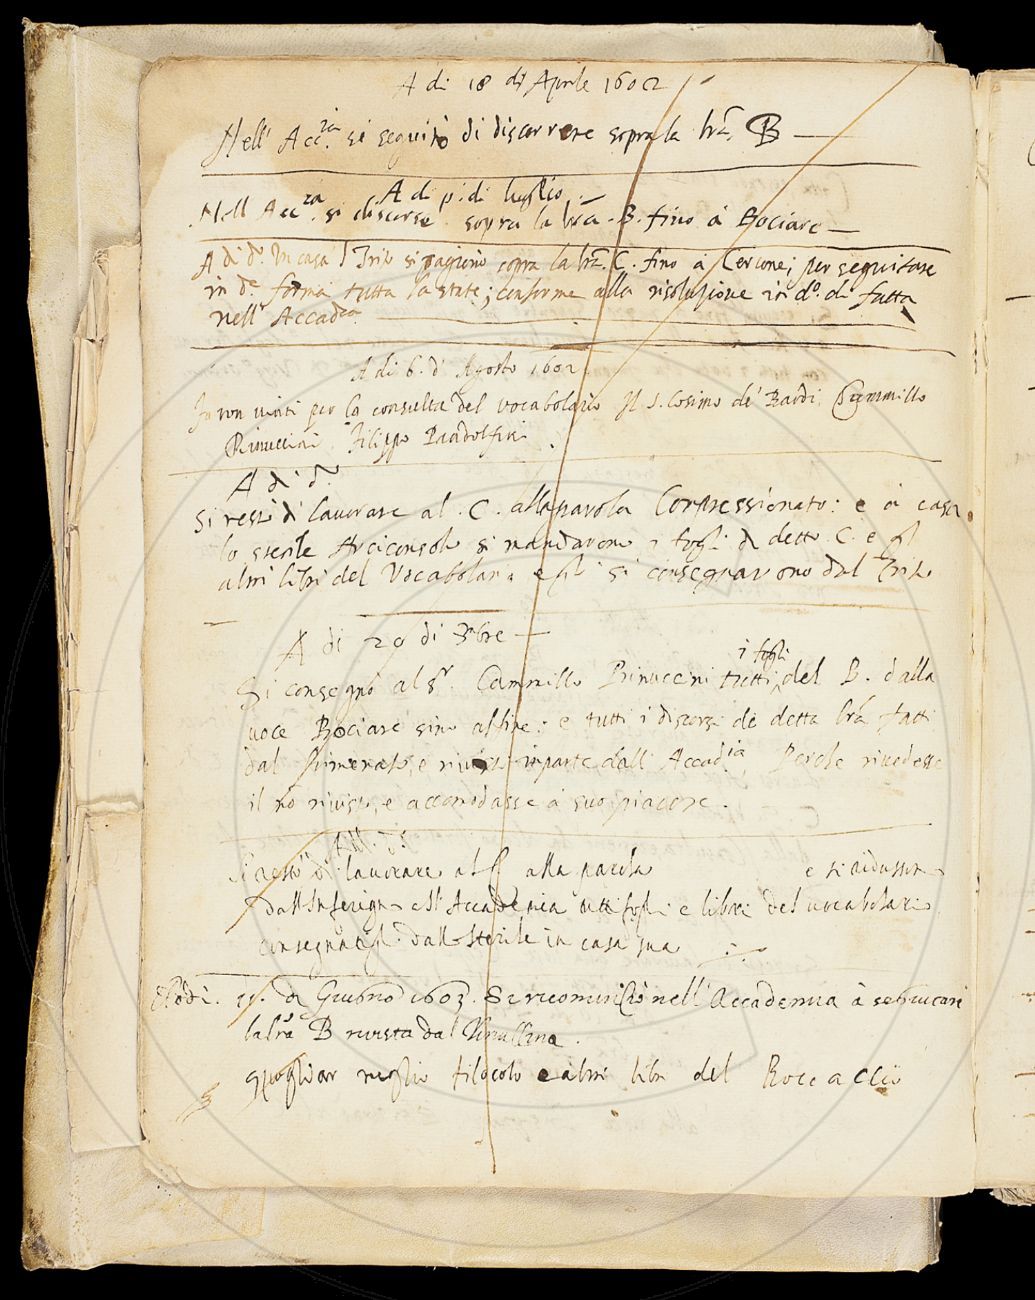 A di 18 di Aprile 1602
Nell' Acc.ia si seguitò di discorrere sopra la lra B
A di p.º di luglio
Nell Acc.za si discorse sopra la lra B. fino à Bociare
A di d.º In casa l'Trito si ragionò sopra la lra C. fino à Cercone; per seguitare
in d.a forma tutta la state; conforme alla risoluzione in d.º di fatta
nell' Accad.ia
A di 6. d' Agosto 1602
Furon vinti per la consulta del vocabolario Il S. Cosimo de' Bardi, Cammillo
Rinuccini Filippo Pandolfini
A di d.º
Si restò di lavorare al . C . alla parola Compressionato: e à casa
lo sterile Arciconsolo si mandarono i fogli di detto C. e gl
altri libri del Vocabolario e gli si consegnarono dal Trito
A di 29 di 7bre
Si consegnò al S.r Cammillo Rinuccini tutti i fogli del B. dalla
voce Bociare sino alfine: e tutti i discorsi di detta lra fatti
dal e rivisto inparte dall' Accad.ia Perche rivedesse
il nō rivisto, e accomodasse à suo piacere.
A di d.º
Si restò di lavorare al C alla parola e si ridussono
dall Inferigno ell' Accademia tutti fogli e libri del vocabolario
consegnatigli dallo sterile in casa sua
di Giugno 1603. Si ricominciò nell' Accademia à seguitare
la lra B rivista dal Rinuccini.
Spogliar meglio filocolo e altri libri del Boccaccio